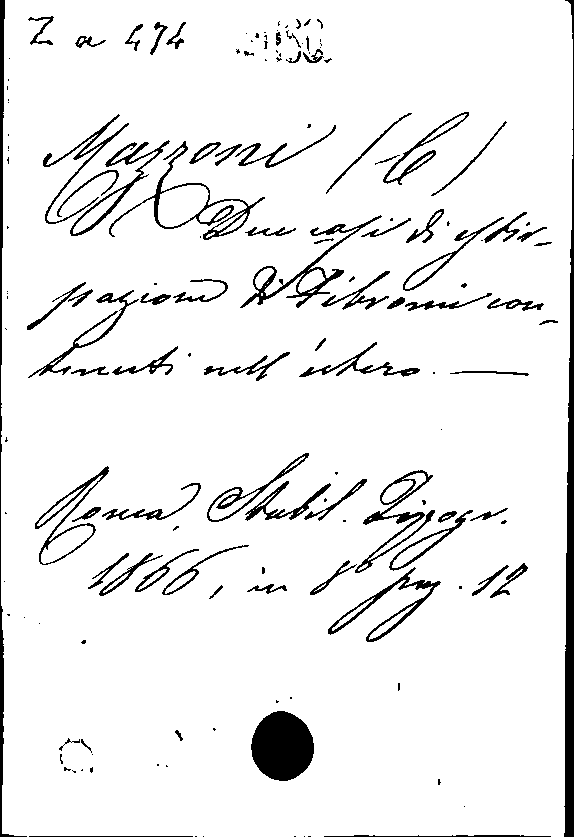 Z a 474
Mazzoni (C)
Due casi di estir-
pazione di Fibromi con-
tenuti nell'utero. —
Roma, Stabil. Tipogr.
1866, in 8° pag. 12